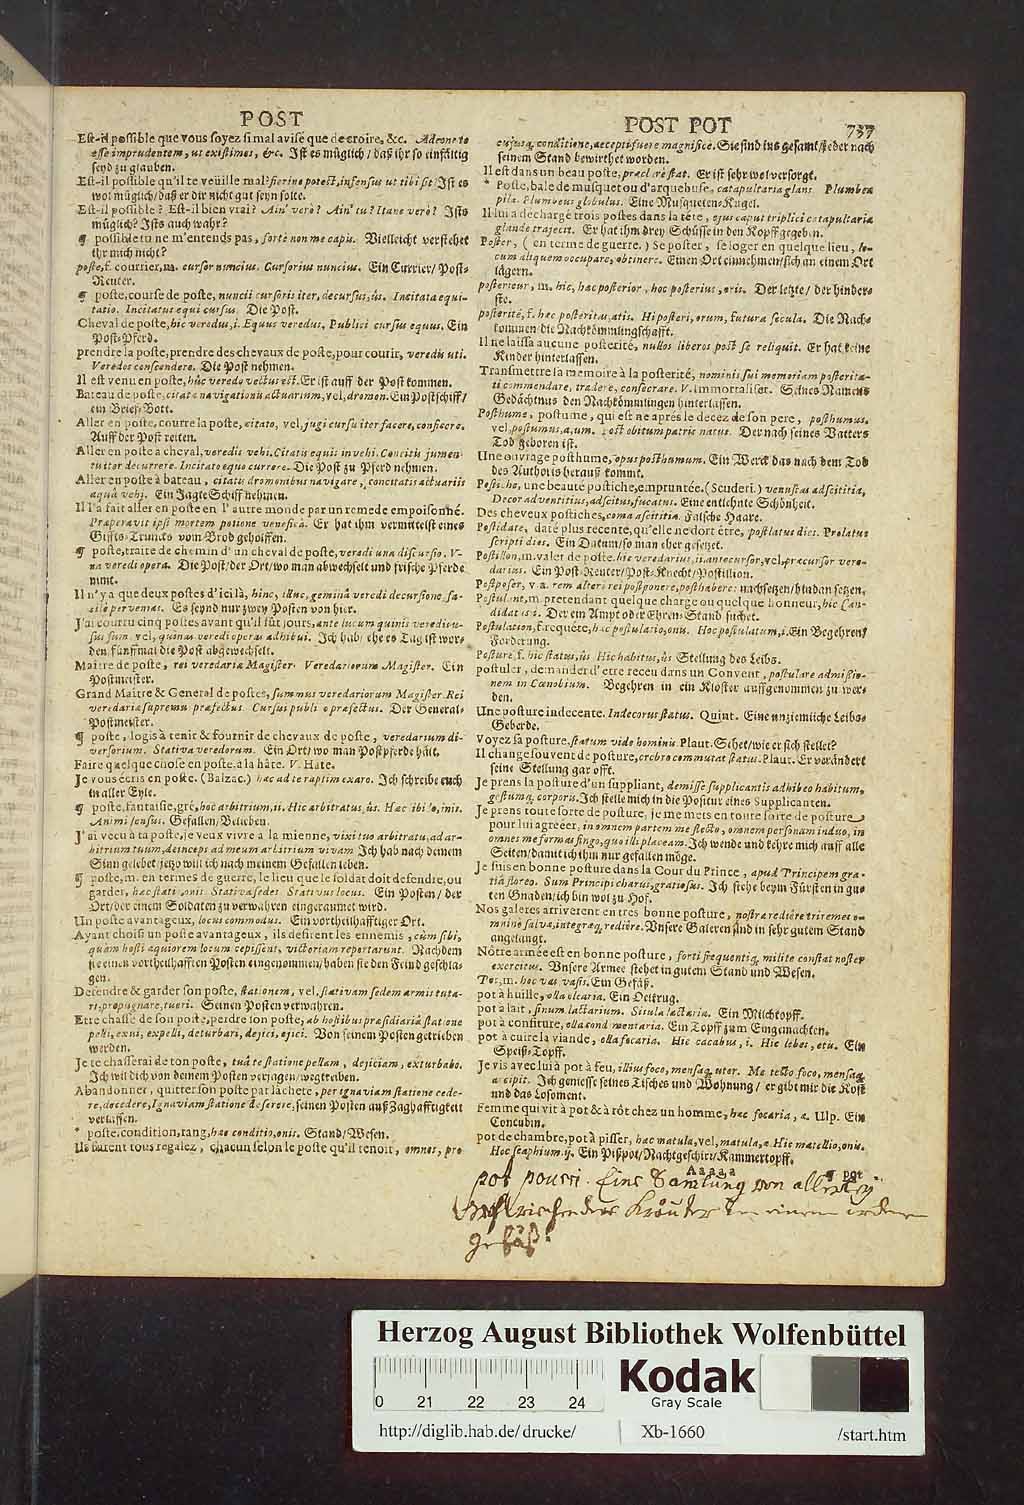 POST
Est-il possible que vous soyez si mal avisé que de croire, &c. Adeone te
esse imprudentem, ut existimes, &c. Ist es müglich / daß ihr so einfältig
seyd zu glauben.
Est-il possible qu'il te veüille mal? fierine potest, infensus ut tibi sit? Ist es
wol müglich / daß er dir nicht gut seyn solte.
Est-il possible? Est-il bien vrai? Ain' verò? Ain' tu? Itane verò? Ists
müglich? Ists auch wahr?
¶ possible tu ne m'entends pas, fortè non me capis. Vielleicht verstehet
ihr mich nicht?
poste, f. courrier, m. cursor nuncius. Cursorius nuncius. Ein Currier / Post-
Reuter.
¶ poste, course de poste, nuncii cursoris iter, decursus, ûs. Incitata equi-
tatio. Incitatus equi cursus. Die Post.
Cheval de poste, hic veredus, i. Equus veredus. Publici cursus equus. Ein
Post-Pferd.
prendre la poste, prendre des chevaux de poste, pour courir, veredis uti.
Veredos conscendere. Die Post nehmen.
Il est venu en poste, hûc veredo vectus est. Er ist auff der Post kommen.
Bateau de poste, citata navigationis actuarium, vel, dromon. Ein Postschiff /
ein Brieff-Bott.
Aller en poste, courre la poste, citato, vel, jugi cursu iter facere, conficere.
Auff der Post reiten.
Aller en poste a cheval, veredis vehi. Citatis equis invehi. Concitis jumen-
tis iter decurrere. Incitato equo currere. Die Post zu Pferd nehmen.
Aller en poste à bateau, citatis dromonibus navigare, concitatis actuariis
aquâ vehi. Ein Jagte Schiff nehmen.
Il l'a fait aller en poste en l'autre monde par un remede empoisonné.
Præperavit ipsi mortem potione veneficâ. Er hat ihm vermittelst eines
Giffts-Truncks vom Brod geholffen.
¶ poste, traite de chemin d'un cheval de poste, veredi una discursio. U-
na veredi opera. Die Post / der Ort / wo man abwechselt und frische Pferde
nimt.
Il n'y a que deux postes d'ici là, hinc, illuc, geminâ veredi decursione, fa-
cilè pervenias. Es seynd nur zwey Posten von hier.
J'ai couru cinq postes avant qu'il fût jours, ante lucem quinis veredi cur-
sus sum, vel, quinas veredi operas adhibui. Ich hab / ehe es Tag ist wor-
den / fünffmal die Post abgewechselt.
Maître de poste, rei veredariæ Magister. Veredariorum Magister. Ein
Postmeister.
Grand Maître & General de postes, summus veredariorum Magister. Rei
veredariæ supremus præfectus. Cursus publici præfectus. Der General-
Postmeister.
¶ poste, logis à tenir & fournit de chevaux de poste, veredarium di-
versorium. Stativa veredorum. Ein Ort / wo man Postpferde hält.
Faire quelque chose en poste, a la hâte. V. Hate.
Je vous écris en poste. (Balzac.) hac ad te raptim exaro. Ich schreibe euch
in aller Eyle.
¶ poste, fantaisie, gré, hoc arbitrium, ii. Hic arbitratus, ûs. Hæc libido, inis.
Animi sensus. Gefallen / Belieben.
J'ai vecu à ta poste, je veux vivre a la mienne, vixi tuo arbitratu, ad ar-
bitrium tuum, deinceps ad meum arbitrium vivam. Ich hab nach deinem
Sinn gelebet / jetzo will ich nach meinem Gefallen leben.
¶ poste, m. en termes de guerre, le lieu que le soldat doit defendre, ou
garder, hæc statio, onis. Stativa sedes. Stativus locus. Ein Posten / der
Ort / der einem Soldaten zu verwahren eingeraumet wird.
Un poste avantageux, locus commodus. Ein vortheilhafftiger Ort.
Ayant choisi un poste avantageux, ils defirent les ennemis, cùm sibi,
quàm hosti æquiorem locum cepissent, victoriam reportarunt. Nachdem
sie einen vortheilhafften Posten eingenommen / haben sie den Feind geschla-
gen.
Defendre & garder son poste, stationem, vel, stativam sedem armis tuta-
ri, propugnare, tueri. Seinen Posten verwahren.
Etre chassé de son poste, perdre son poste, ab hostibus præsidiariâ statione
pelli, exui, expelli, deturbari, dejici, ejici. Von seinem Posten getrieben
werden.
Je te chasserai de ton poste, tuâ te statione pellam, dejiciam, exturbabo.
Ich will dich von deinem Posten verjagen / wegtreiben.
Abandonner, quitter son poste par lâcheté, per ignaviam statione cede-
re, decedere, Ignaviam statione deserere, seinen Posten auß Zaghafftigkeit
verlassen.
* poste, condition, rang, hæc conditio, onis. Stand / Wesen.
Ils furent tous regalez, chacun selon le poste qu'il tenoit, omnes, pro
POST POT 737
cujusq; conditione, accepti fuere magnificè. Sie sind ins gesamt / jeder nach
seinem Stand bewirthet worden.
Il est dans un beau poste, præclarè stat. Er ist sehr wol versorgt.
* Poste, bale de musquet ou d'arquebuse, catapultaria glans. Plumbea
pila. Plumbeus globulus. Eine Musqueten-Kugel.
Il lui a dechargé trois postes dans la tête, ejus caput triplici catapultaria
glande trajecit. Er hat ihm drey Schüsse in den Kopff gegeben.
Poster, (en terme de guerre.) Se poster, se loger en quelque lieu, lo-
cum aliquem occupare, obtinere. Einen Ort einnehmen / sich an einem Ort
lägern.
posterieur, m. hic, hæc posterior, hoc posterius, oris. Der letzte / der hinder-
ste.
posterité, f. hæc posteritas, atis. Hi posteri, orum, futura secula. Die Nach-
kommen die Nachkömmlingschafft.
Il ne laissa aucune posterité, nullos liberos post se reliquit. Er hat keine
Kinder hinterlassen.
Transmettre la memoire à la posterité, nominis sui memoriam posterita-
ti commendare, tradere, consecrare. V. immortaliser. Seines Namens
Gedächtnus den Nachkömmlingen hinterlassen.
Posthume, postume, qui est né aprés le decez de son pere, posthumus,
vel, postumus, a, um. Post obitum patris natus. Der nach seines Vatters
Tod geboren ist.
Une ouvrage posthume, opus posthumum. Ein Werck das nach dem Tod
des Authoris herauß kommt.
Postiche, une beauté postiche, empruntée. (Scuderi.) venustas adscititia,
Decor adventitius, adscitus, fucatus. Eine entlehnte Schönheit.
Des cheveux postiches, coma ascititia. Falsche Haare.
Postidate, daté plus recente, qu'elle ne dort étre, postlatus dies. Prolatus
scripti dies. Ein Datum / so man eher gesetzet.
Postillon, m. valet de poste. hic veredarius, ii. antecursor, vel, præcursor vere-
darius. Ein Post-Reuter / Post-Knecht / Postillion.
Postposer, v. a. rem alteri rei postponere, posthabere: nachsetzen / hindan setzen.
Postulant, m. pretendant quelque charge ou quelque honneur, hic Can-
didatus, i. Der ein Ampt oder Ehren-Stand suchet.
Postulation, f. requête, hæc postulatio, onis. Hoc postulatum, i. Ein Begehren /
Forderung.
Posture, f. hic status, ûs. Hic habitus, ûs. Stellung des Leibs.
postuler, demander d'etre receu dans un Convent, postulare admissio-
nem in Cœnobium. Begehren in ein Kloster auffgenommen zu wer-
den.
Une posture indecente. Indecorus status. Quint. Eine unziemliche Leibs-
Geberde.
Voyez sa posture, statum vide hominis. Plaut. Sehet / wie er sich stellet?
Il change souvent de posture, crebro commutat status. Plaut. Er verändert
seine Stellung gar offt.
Je prens la posture d'un suppliant, demissè supplicantis adhibeo habitum,
gestumq; corporis. Ich stelle mich in die Positur eines Supplicanten.
Je prens toute sorte de posture, je me mets en toute sorte de posture
pour lui agréer, in omnem partem me flecto, omnem personam induo, in
omnes me formas fingo, quò illi placeam. Ich wende und kehre mich auff alle
Seiten / damit ich ihm nur gefallen möge.
Je suis en bonne posture dans la Cour du Prince, apud Principem gra-
tiâ floreo. Sum Principi charus, gratiosus. Ich stehe beym Fürsten in gu-
ten Gnaden / ich bin wol zu Hof.
Nos galeres arriverent en tres bonne posture, nostræ rediêre triremes o-
mnino salvæ, integræq; rediêre. Unsere Galeren sind in sehr gutem Stand
angelangt.
Nôtre armée est en bonne posture, forti frequentiq; milite constat noster
exercitus. Unsere Armee stehet in gutem Stand und Wesen.
Pot, m. hoc vas vasis. Ein Gefäß.
pot à huille, olla olearia. Ein Oelkrug.
pot à lait, sinum lactarium. Situla lactaria. Ein Milchtopff.
pot à confiture, olla condimentaria. Ein Topff zum Eingemachten.
pot à cuire la viande, olla focaria. Hic cacabus, i. Hic lebes, etis. Ein
Speiß-Topff.
Je vis avec lui à pot à feu, illius foco, mensaq; utor. Me tecto foco, mensaq;
accipit. Ich geniesse seines Tisches und Wohnung / er gibt mir die Kost
und das Losoment.
Femme qui vit à pot & à rôt chez un homme, hæc focaria, æ. Ulp. Ein
Concubin.
pot de chambre, pot à pisser, hæc matula, vel, matula, æ. Hic matellio, onis.
Hoc scaphium, ij. Ein Pißpot / Nachtgeschirr / Kammertopff.
Aaaaa
¶ pot
pot pourri. Eine Samlung von allerley
riechender Kräuter in einem irdenen
gefäß.
Herzog August Bibliothek Wolfenbüttel
Kodak
Gray Scale
0 21 22 23 24
http://diglib.hab.de/drucke/ Xb-1660 /start.htm